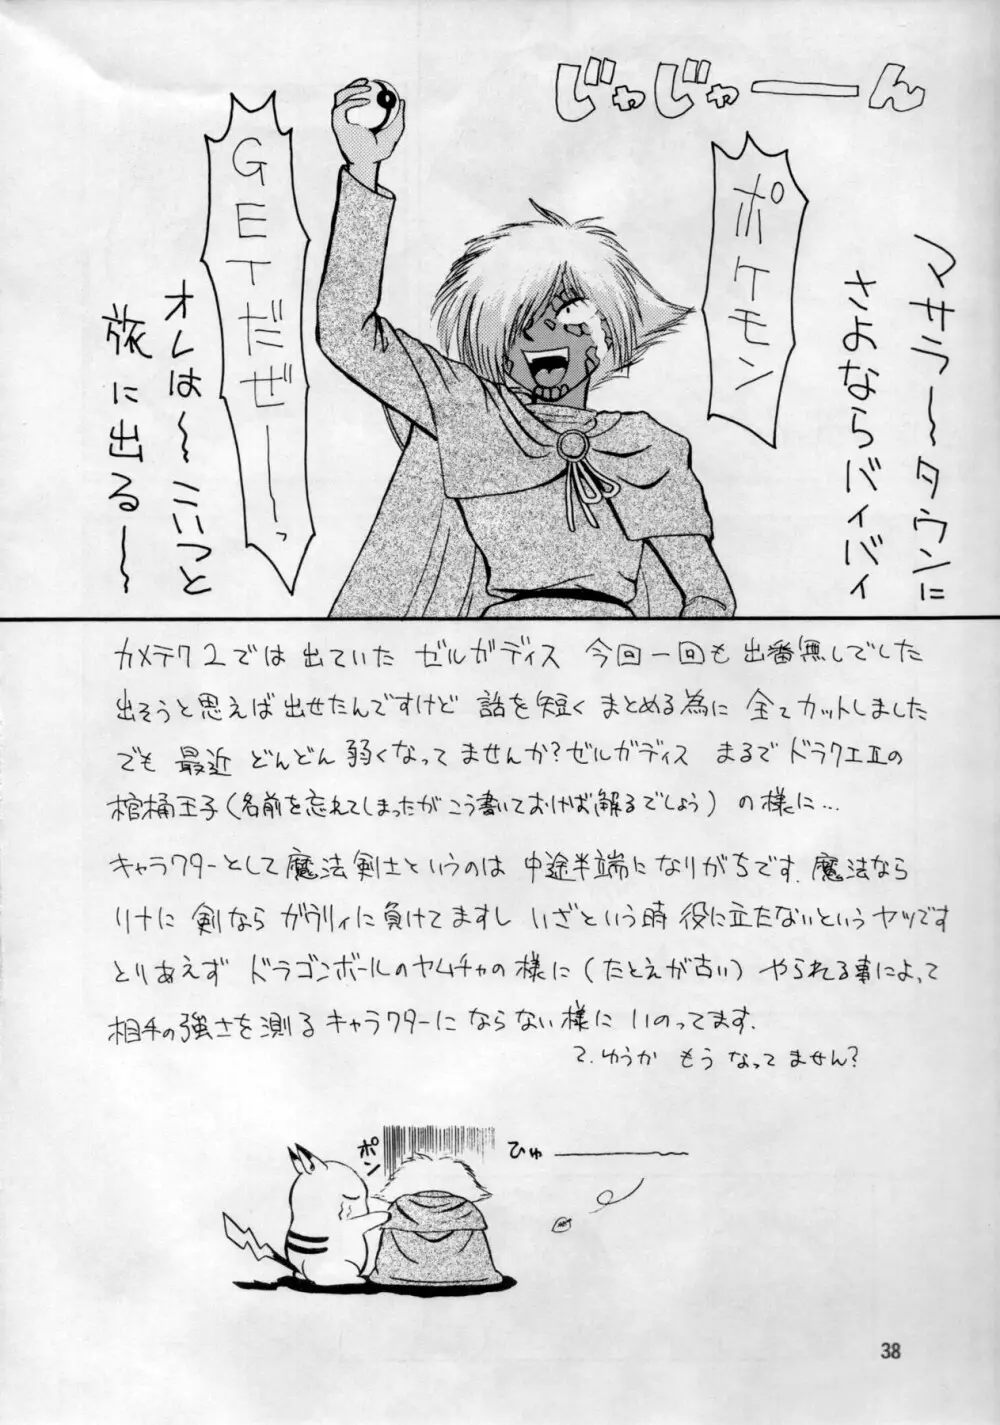 じゃじゃーん
ポケモン
GETだぜーーっ
マサラ〜タウンに
さよならバイバイ
オレは〜こいつと
旅に出る〜
カメテク2では出ていたゼルガディス 今回一回も出番無しでした
出そうと思えば出せたんですけど 話を短くまとめる為に全てカットしました
でも 最近 どんどん弱くなってませんか?ゼルガディス まるでドラクエⅡの
棺桶王子(名前を忘れてしまったがこう書いておけば解るでしょう)の様に…
キャラクターとして魔法剣士というのは 中途半端になりがちです.魔法なら
リナに 剣なら ガウリィに負けてますし いざという時 役に立たないというヤツです
とりあえず ドラゴンボールのヤムチャの様に(たとえが古い) やられる事によって
相手の強さを測るキャラクターにならない様に いのってます.
て.ゆうか もうなってません?
ポン
ひゅー
38